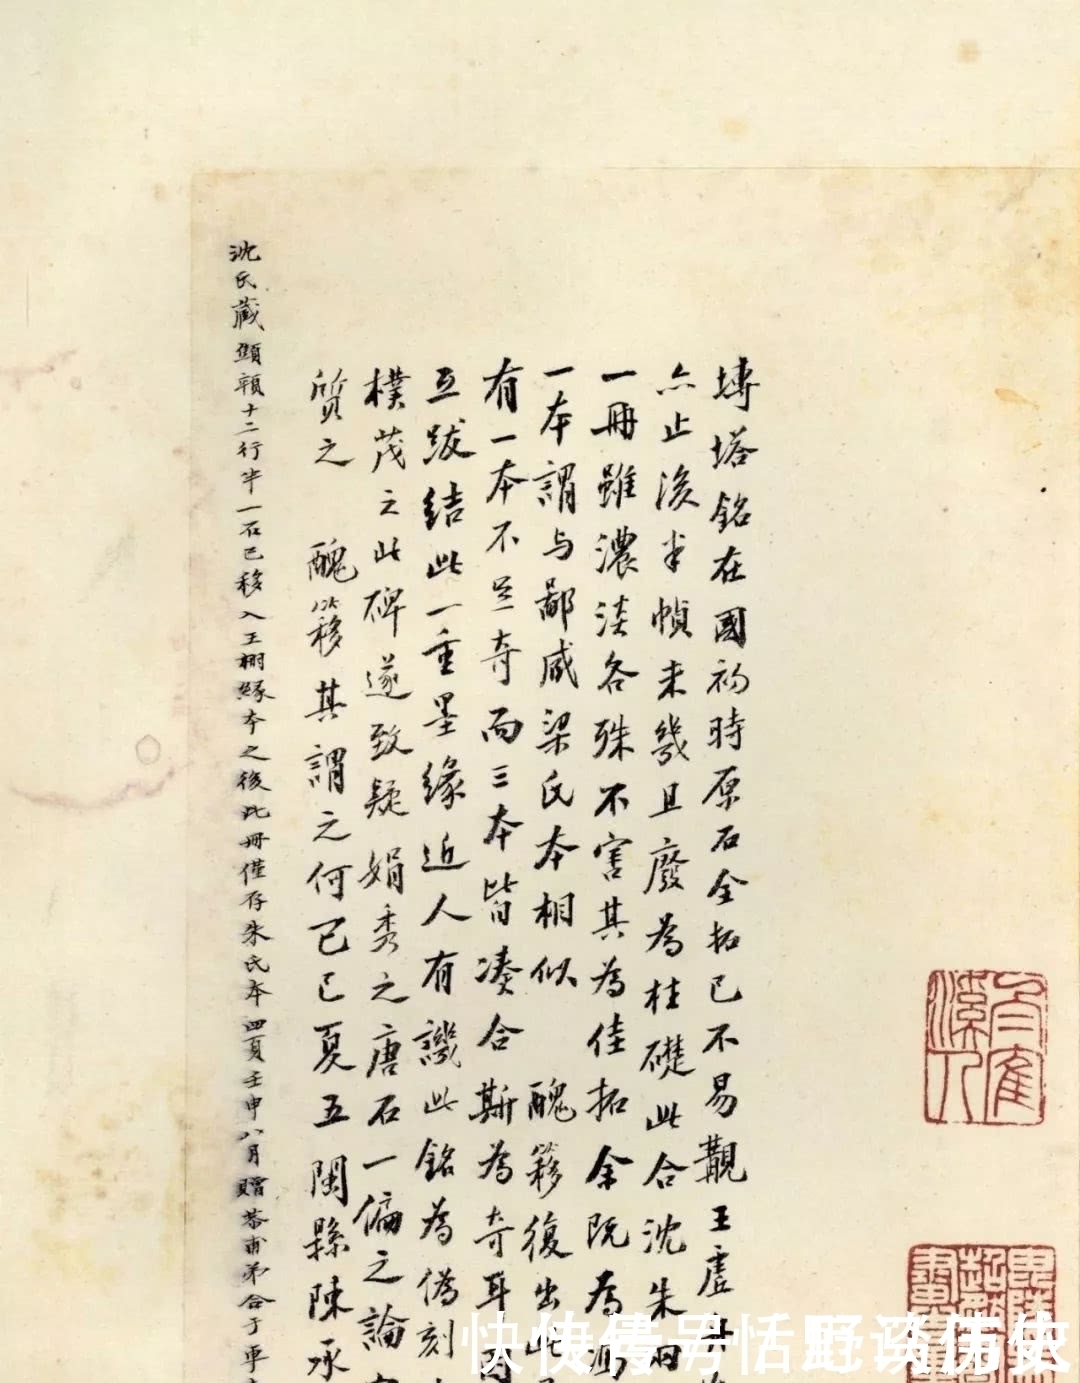 塼塔銘在國初時原石全拓已不易覯王虛舟
亦止後半幀未幾且廢為柱礎此合沈朱兩
一冊雖濃淡各殊不害其為佳拓余既為馮
一本謂与鄢威梁氏本相似 醜簃復出此
有一本不足奇而三本皆湊合斯為奇耳因
互跋結此一重墨緣近人有譏此銘為偽刻
樸茂之此碑遂致疑娟秀之唐石一偏之論
質之 醜簃其謂之何己巳夏五閩縣陳承
沈氏藏顯頖十二行半一石已移入王栩緣本之後此冊僅存朱氏本 四夏壬申八月贈恭甫弟合于